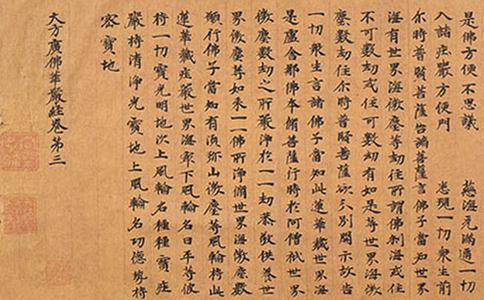 是佛方便不思議　慈海充滿遍一切
入諸莊嚴方便門　普現一切衆生前
尒時普賢菩薩告諸菩薩言佛子當知世界
海有世界海微塵等劫住所謂佛剎海或住
不可數劫或住可數劫有如是等世界海微
塵數劫住尒時普賢菩薩欲分別開示故告
一切衆生言諸佛子當知此蓮華藏世界海
是盧舍那佛本脩菩薩行時於阿僧祇世界
微塵數劫之所嚴淨於一一劫恭敬供養世
界微塵等如來一一佛所淨脩世界海微塵數
願行佛子當知有須弥山微塵等風輪持此
蓮華藏莊嚴世界海最下風輪名曰平等彼
持一切寶光明地次上風輪名種種寶莊
嚴持清淨光寶地上風輪名功德勢持
密寶地
大方廣佛華嚴經卷第三